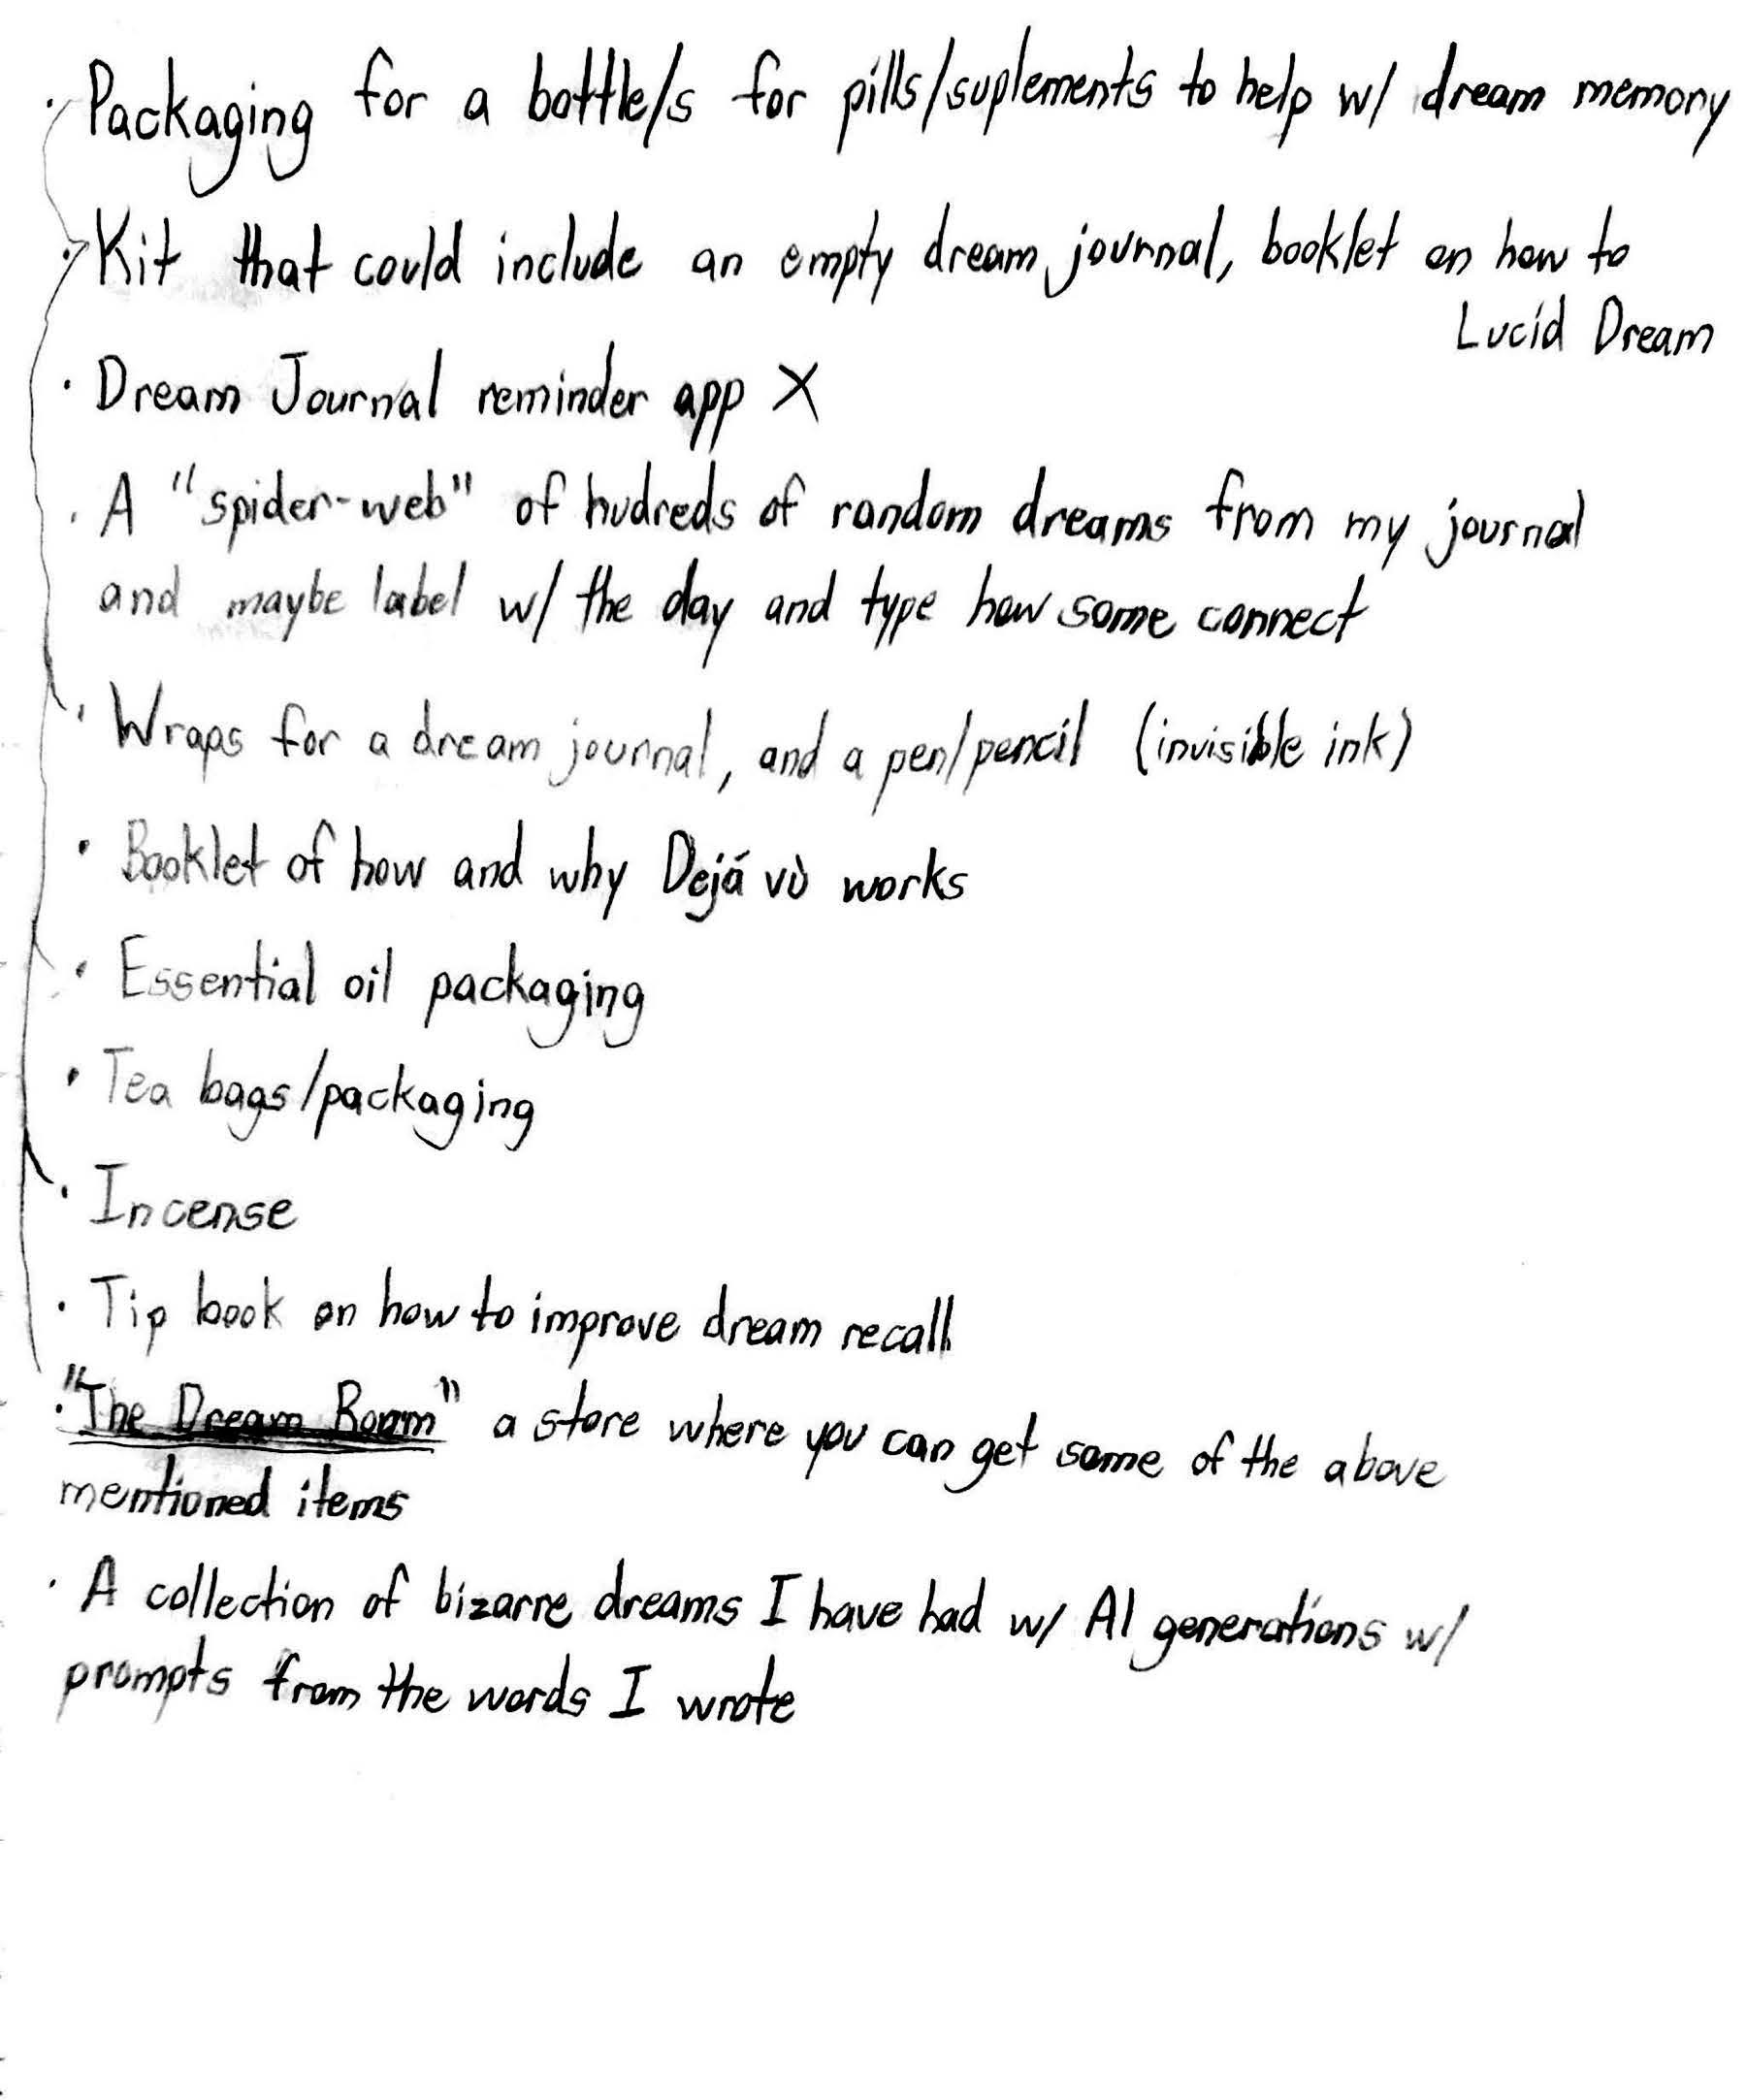 · Packaging for a bottle/s for pills/suplements to help w/ dream memory
· Kit that could include an empty dream journal, booklet on how to
Lucid Dream
· Dream Journal reminder app X
· A "spider-web" of hudreds of random dreams from my journal
and maybe label w/ the day and type how some connect
· Wraps for a dream journal, and a pen/pencil (invisible ink)
· Booklet of how and why Dejá vù works
· Essential oil packaging
· Tea bags/packaging
· Incense
· Tip book on how to improve dream recall
· "The Dream Room" a store where you can get some of the above
mentioned items
· A collection of bizarre dreams I have had w/ AI generations w/
prompts from the words I wrote